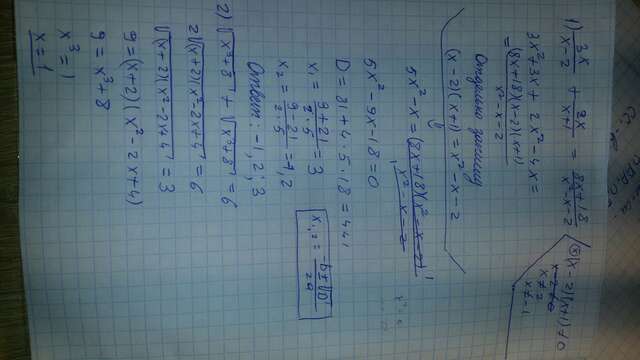 1) 3x/(x-2) + 2x/(x+1) = (8x+18)/(x²-x-2)
(x-2)(x+1)≠0
x≠2
x≠-1
3x²+3x + 2x²-4x =
= (8x+18)(x-2)(x+1)/(x²-x-2)
(x-2)(x+1) = x²-x-2
5x²-x = (8x+18)(x²-x-2)/(x²-x-2)
5x²-9x-18=0
D = 81+4·5·18 = 441
x₁ = (9+21)/(2·5) = 3
x₂ = (9-21)/(2·5) = -1,2
x₁,₂ = (-b±√D)/2a
Ответ: -1,2; 3
2) √(x³+8) + √(x³+8) = 6
2√((x+2)(x²-2x+4)) = 6
√((x+2)(x²-2x+4)) = 3
9=(x+2)(x²-2x+4)
9 = x³+8
x³=1
x=1